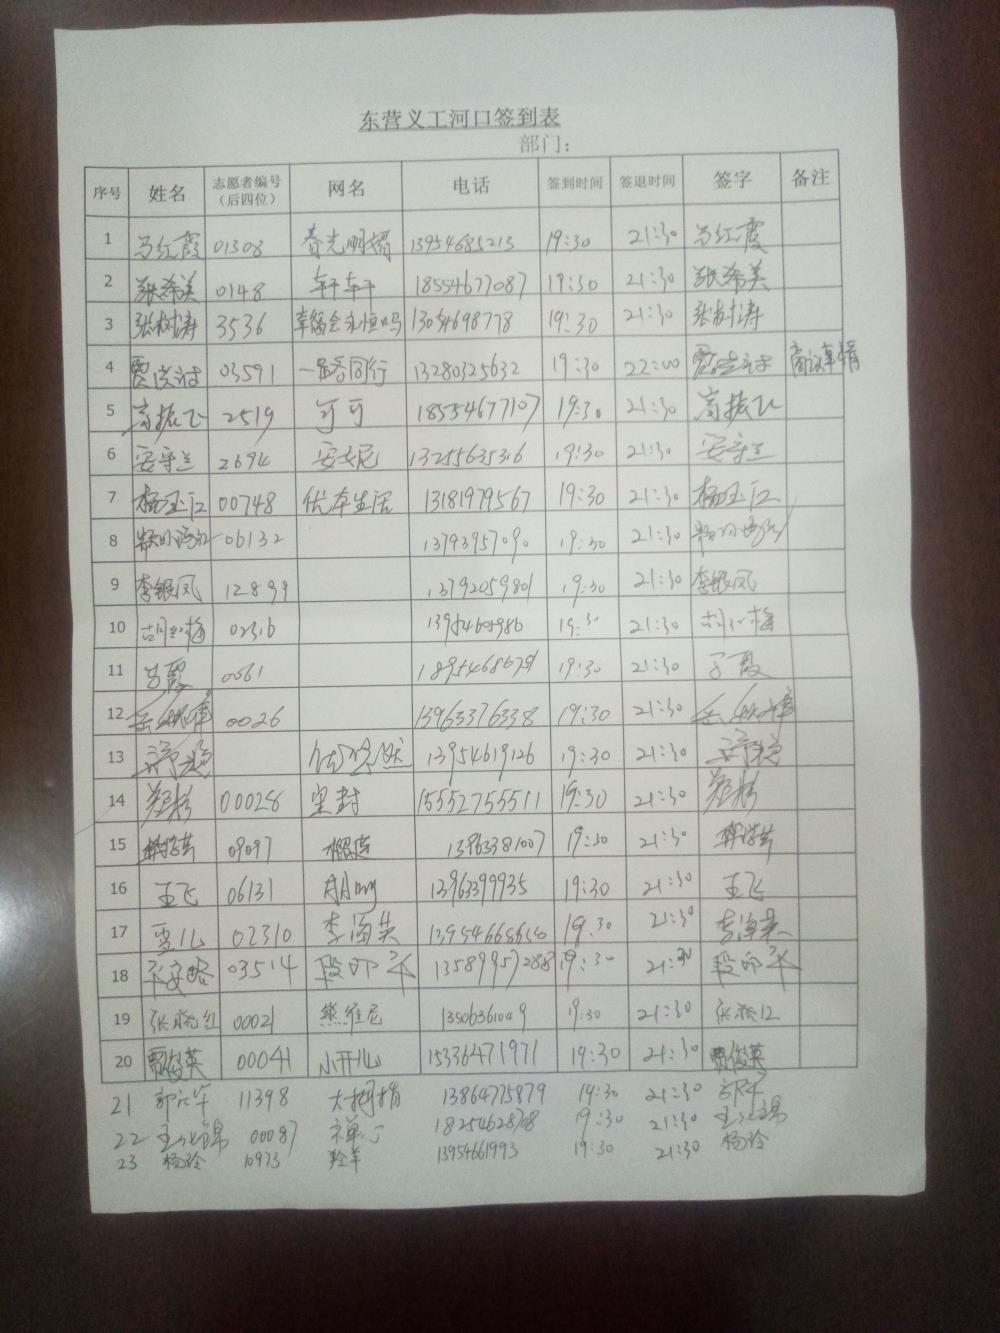 东营义工河口签到表
部门：
序号 姓名 志愿者编号（后四位） 网名 电话 签到时间 签退时间 签字 备注
1 马红霞 01308 春光明媚 13954685213 19:30 21:30 马红霞
2 张希美 0148 轩轩 18554677087 19:30 21:30 张希美
3 张树涛 3536 幸福会永恒吗 13054698778 19:30 21:30 张树涛
4 03591 一路同行 13280325632 19:30 22:00
5 高振飞 2519 可可 18554677107 19:30 21:30 高振飞
6 安守兰 2694 安妮 13255635316 19:30 21:30 安守兰
7 杨玉江 00748 优本生活 13181979567 19:30 21:30 杨玉江
8 06132 13793957090 19:30 21:30
9 李银凤 12899 13792059801 19:30 21:30 李银凤
10 02316 13954605986 19:30 21:30
11 0061 19:30 21:30
12 0026 13963376338 19:30 21:30
13 13954619126 19:30 21:30
14 郑杉 00028 尘封 15552755511 19:30 21:30 郑杉
15 09097 13963381007 19:30 21:30
16 王飞 06131 13963399935 19:30 21:30 王飞
17 雪儿 02310 李海英 13954668650 19:30 21:30 李海英
18 平安路 03514 段印平 13589957288 19:30 21:30 段印平
19 张晓红 00021 熊维尼 13506361049 9:30 21:30 张晓红
20 贾俊英 00041 小开心 15336471971 19:30 21:30 贾俊英
21. 11398 大拇指 13864775879 19:30 21:30
22 00087 禅心 18254628708 19:30 21:30
23 杨玲 10973 羚羊 13954661993 19:30 21:30 杨玲